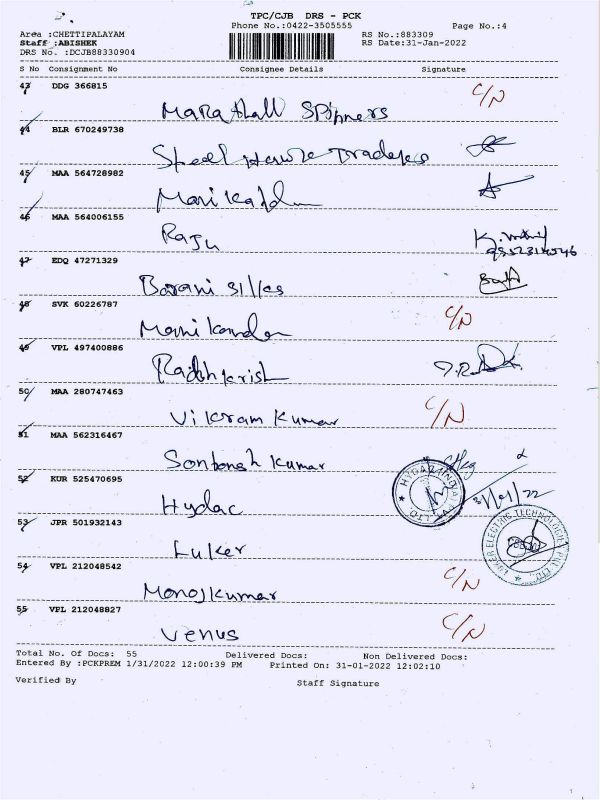 TPC/CJB DRS - PCK
Phone No.:0422-3505555 Page No.:4
Area :CHETTIPALAYAM RS No.:883309
Staff :ABISHEK RS Date:31-Jan-2022
DRS No. :DCJB88330904
S No Consignment No Consignee Details Signature
43 DDG 366815 C/N
Marathall Spinners
44 BLR 670249738
Steel House Traders
45 MAA 564728982
Manikandan
46 MAA 564006155
Raju
47 EDQ 47271329
Barani silks
48 SVK 60226787 C/N
Manikandan
49 VPL 497400886
Radhkrish
50 MAA 280747463 C/N
Vikram Kumar
51 MAA 562316467
Santhosh Kumar
52 KUR 525470695 HYDAC INDIA
Hydac 31/01/22
53 JPR 501932143 LUKER ELECTRIC TECHNOLOGIES
Luker
54 VPL 212048542 C/N
Manojkumar
55 VPL 212048827 C/N
Venus
Total No. Of Docs: 55 Delivered Docs: Non Delivered Docs:
Entered By :PCKPREM 1/31/2022 12:00:39 PM Printed On: 31-01-2022 12:02:10
Verified By Staff Signature